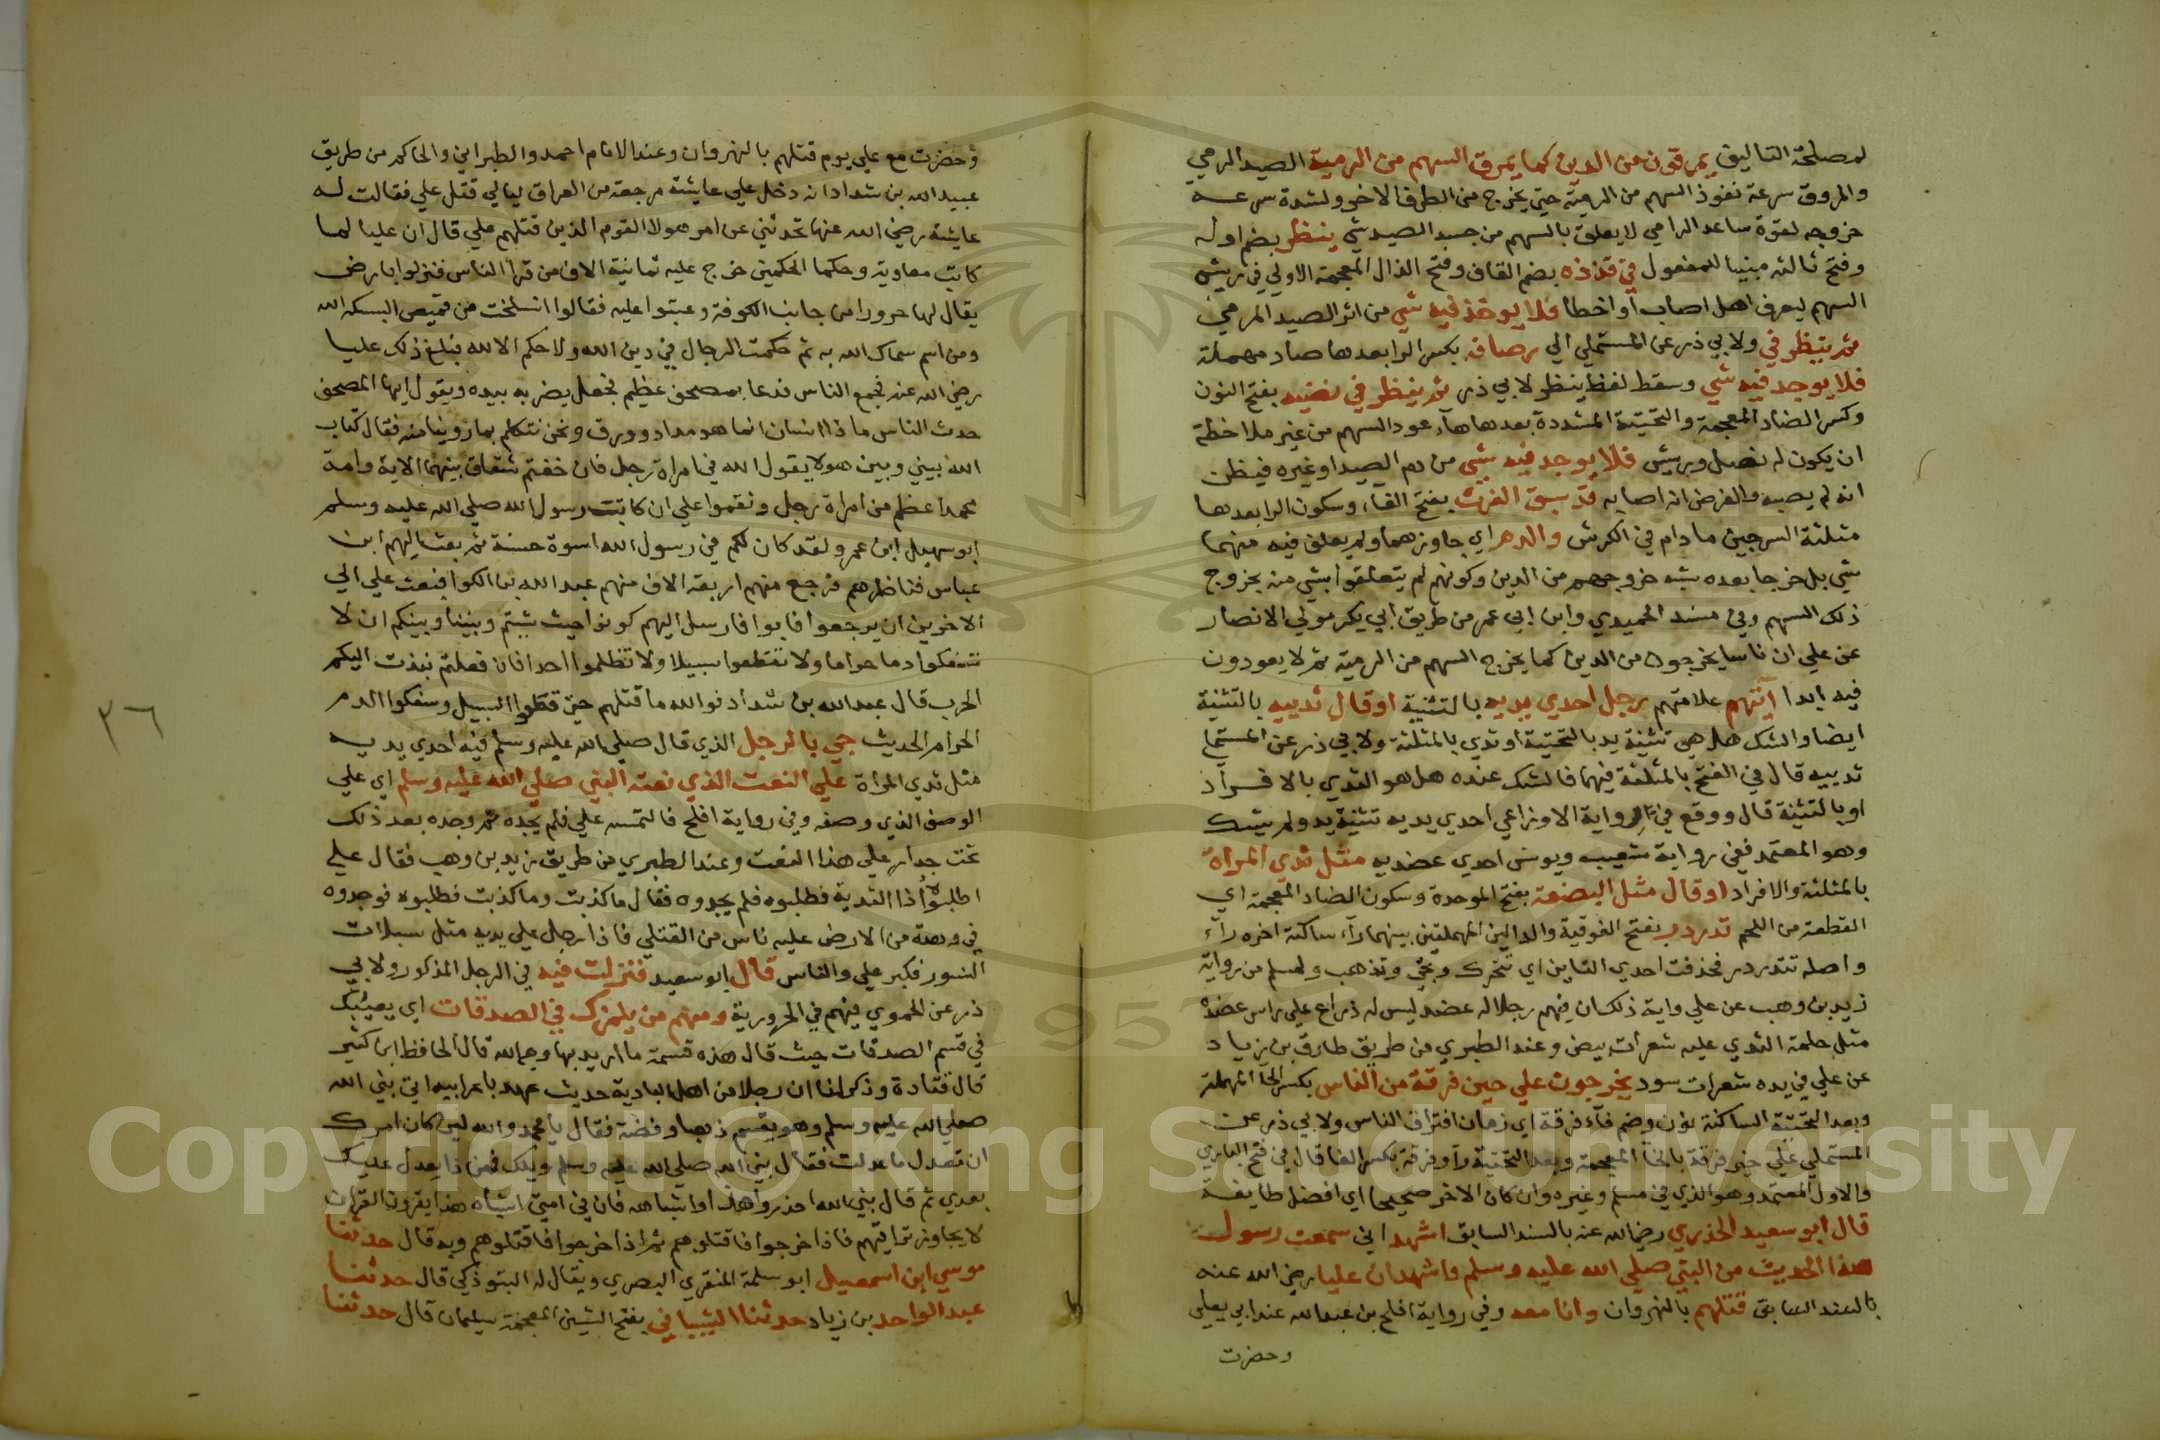 لمصلحة التاليف يمرقون من الدين كما يمرق السهم من الرمية الصيد المرمي
والمروق سرعة نفوذ السهم من الرمية حتى يخرج من الطرف الاخر ولشدة سرعة
خروجه لقوة ساعد الرامي لا يعلق بالسهم من جسد الصيد شي ينظر بضم اوله
وفتح ثالثه مبنيا للمفعول في قذذه بضم القاف وفتح الذال المعجمة الاولي في ريش
السهم ليعرف اهل اصاب او اخطا فلا يوخذ فيه شي من اثر الصيد المرمي
ثم ينظر في ولابي ذر عن المستملي الي رصافه بكسر الرا بعدها صاد مهملة
فلا يوجد فيه شي وسقط لفظ ينظر لابي ذر ثم ينظر في نضيه بفتح النون
وكسر الضاد المعجمة والتحتية المشددة بعدها هاء عود السهم من غير ملاحظة
ان يكون له نصل وريش فلا يوجد فيه شي من دم الصيد او غيره فيظن
انه لم يصبه والفرض انه اصابه قد سبق الفرث بفتح الفاء وسكون الرا بعدها
مثلثة السرجين ما دام في الكرش والدم اي جاوزهما ولم يعلق فيه منهما
شي بل خرجا بعده شبه خروجهم من الدين وكونهم لم يتعلقوا بشي منه بخروج
ذلك السهم وفي مسند الحميدي وابن ابي عمر من طريق ابي بكر مولي الانصار
عن علي ان ناسا يخرجون من الدين كما يخرج السهم من الرمية ثم لا يعودون
فيه ابدا آيتهم علامتهم رجل احدي يديه بالتثنية او قال ثدييه بالتثنية
ايضا والشك هل هي تثنية يد بالتحتية او ثدي بالمثلثة ولابي ذر عن المستملي
ثدييه قال في الفتح بالمثلثة فيهما فالشك عنده هل هو الثدي بالافراد
او بالتثنية قال ووقع في رواية الاوزاعي احدي يديه تثنية يد ولم يشك
وهو المعتمد ففي رواية شعيب ويونس احدي عضديه مثل ثدي المراة
بالمثلثة والافراد او قال مثل البضعة بفتح الموحدة وسكون الضاد المعجمة اي
القطعة من اللحم تدردر بفتح الفوقية والدالين المهملتين بينهما راء ساكنة اخره راء
واصله تتدردر فحذفت احدي التاين اي تتحرك وتجي وتذهب ولمسلم من رواية
زيد بن وهب عن علي واية ذلك ان فيهم رجلا له عضد ليس له ذراع علي راس عضده
مثل حلمة الثدي عليه شعرات بيض وعند الطبري من طريق طارق بن زياد
عن علي في يده شعرات سود يخرجون علي حين فرقة من الناس بكسر الحاء المهملة
وبعد التحتية الساكنة نون وضم فاء فرقة اي زمان افتراق الناس ولابي ذر عن
المستملي علي خير فرقة بالخاء المعجمة وبعد التحتية راء وفرقة بكسر الفا قال في فتح الباري
والاول المعتمد وهو الذي في مسلم وغيره وان كان الاخر صحيحا اي افضل طايفة
قال ابو سعيد الخدري رضي الله عنه بالسند السابق اشهد اني سمعت رسول
هذا الحديث من النبي صلي الله عليه وسلم واشهد ان عليا رضي الله عنه
بالسند السابق قتلهم بالنهروان وانا معه وفي رواية افلح بن عبد الله عند ابي يعلي
وحضرت
وحضرت مع علي يوم قتلهم بالنهروان وعند الامام احمد والطبراني والحاكم من طريق
عبيد الله بن شداد انه دخل علي عايشة مرجعه من العراق ليالي قتل علي فقالت له
عايشة رضي الله عنها تحدثني عن امر هولا القوم الذين قتلهم علي قال ان عليا لما
كاتب معاوية وحكما الحكمين خرج عليه ثمانية الاف من قرا الناس فنزلوا بارض
يقال لها حرورا من جانب الكوفة وعتبوا عليه فقالوا انسلخت من قميص البسكه الله
ومن اسم سماك الله به ثم حكمت الرجال في دين الله ولا حكم الا لله فبلغ ذلك عليا
رضي الله عنه فجمع الناس فدعا بمصحف عظيم فجعل يضربه بيده ويقول ايها المصحف
حدث الناس ماذا انسان انما هو مداد وورق ونحن نتكلم بما روينا منه فقال كتاب
الله بيني وبين هولا يقول الله في امراة رجل فان خفتم شقاق بينهما الاية وامة
محمد اعظم من امراة رجل ونقموا علي ان كاتبت رسول الله صلي الله عليه وسلم
ابو سهيل ابن عمرو ولقد كان لكم في رسول الله اسوة حسنة ثم بعث اليهم ابن
عباس فناظرهم فرجع منهم اربعة الاف منهم عبد الله بن الكوا فبعث علي الي
الاخرين ان يرجعوا فابوا فارسل اليهم كونوا حيث شيتم وبيننا وبينكم ان لا
تسفكوا دما حراما ولا تقطعوا سبيلا ولا تظلموا احدا فان فعلتم نبذت اليكم
الحرب قال عبد الله بن شداد فوالله ما قتلهم حتى قطعوا السبيل وسفكوا الدم
الحرام الحديث جي بالرجل الذي قال صلي الله عليه وسلم فيه احدي يديه
مثل ثدي المراة علي النعت الذي نعته النبي صلي الله عليه وسلم اي علي
الوصف الذي وصفه وفي رواية افلح فالتمسه علي فلم يجده ثم وجده بعد ذلك
تحت جدار علي هذا النعت وعند الطبري من طريق زيد بن وهب فقال علي
اطلبوا ذا الثدية فطلبوه فلم يجدوه فقال ما كذبت وما كذبت فطلبوه فوجدوه
في وهدة من الارض عليه ناس من القتلي فاذا رجل علي يديه مثل سبلات
السنور فكبر علي والناس قال ابو سعيد فنزلت فيه في الرجل المذكور ولابي
ذر عن الحموي فيهم في الحرورية ومنهم من يلمزك في الصدقات اي يعيبك
في قسم الصدقات حيث قال هذه قسمة ما اريد بها وجه الله قال الحافظ ابن كثير
قال قتادة وذكر لنا ان رجلا من اهل البادية حديث عهد باعرابيه اتي بني الله
صلي الله عليه وسلم وهو يقسم ذهبا وفضة فقال يا محمد والله لين كان امرك
ان تعدل ما عدلت فقال نبي الله صلي الله عليه وسلم ويلك فمن ذا يعدل عليك
بعدي ثم قال نبي الله احذروا هذا واشباهه فان في امتي اشباه هذا يقرون القران
لا يجاوز تراقيهم فاذا خرجوا فاقتلوهم ثم اذا خرجوا فاقتلوهم وبه قال حدثنا
موسي ابن اسمعيل ابو سلمة المنقري البصري ويقال له التبوذكي قال حدثنا
عبد الواحد بن زياد حدثنا الشيباني بفتح الشين المعجمة سليمان قال حدثنا
٣٦
Copyright © King Saud University
1957